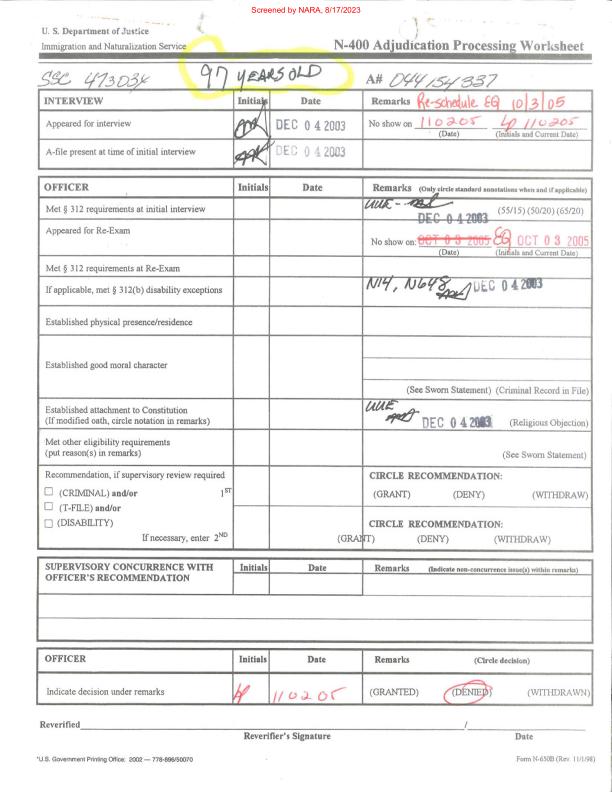 Screened by NARA, 8/17/2023
U. S. Department of Justice
Immigration and Naturalization Service
N-400 Adjudication Processing Worksheet
SSC 47303x 97 YEARS OLD A# 044 154 337
INTERVIEW Initials Date Remarks Re-schedule EQ 10/3/05
Appeared for interview DEC 04 2003 No show on 110205 110205
(Date) (Initials and Current Date)
A-file present at time of initial interview DEC 04 2003
OFFICER Initials Date Remarks (Only circle standard annotations when and if applicable)
Met § 312 requirements at initial interview UUE - DEC 04 2003 (55/15) (50/20) (65/20)
Appeared for Re-Exam No show on: OCT 03 2005 EQ OCT 03 2005
(Date) (Initials and Current Date)
Met § 312 requirements at Re-Exam
If applicable, met § 312(b) disability exceptions N14, N648 DEC 04 2003
Established physical presence/residence
Established good moral character
(See Sworn Statement) (Criminal Record in File)
Established attachment to Constitution UUE
(If modified oath, circle notation in remarks) DEC 04 2003 (Religious Objection)
Met other eligibility requirements
(put reason(s) in remarks) (See Sworn Statement)
Recommendation, if supervisory review required CIRCLE RECOMMENDATION:
(CRIMINAL) and/or 1ST (GRANT) (DENY) (WITHDRAW)
(T-FILE) and/or
(DISABILITY) CIRCLE RECOMMENDATION:
If necessary, enter 2ND (GRANT) (DENY) (WITHDRAW)
SUPERVISORY CONCURRENCE WITH Initials Date Remarks (Indicate non-concurrence issue(s) within remarks)
OFFICER'S RECOMMENDATION
OFFICER Initials Date Remarks (Circle decision)
Indicate decision under remarks 110205 (GRANTED) (DENIED) (WITHDRAWN)
Reverified /
Reverifier's Signature Date
*U.S. Government Printing Office: 2002 — 778-896/50070 Form N-650B (Rev. 11/1/98)